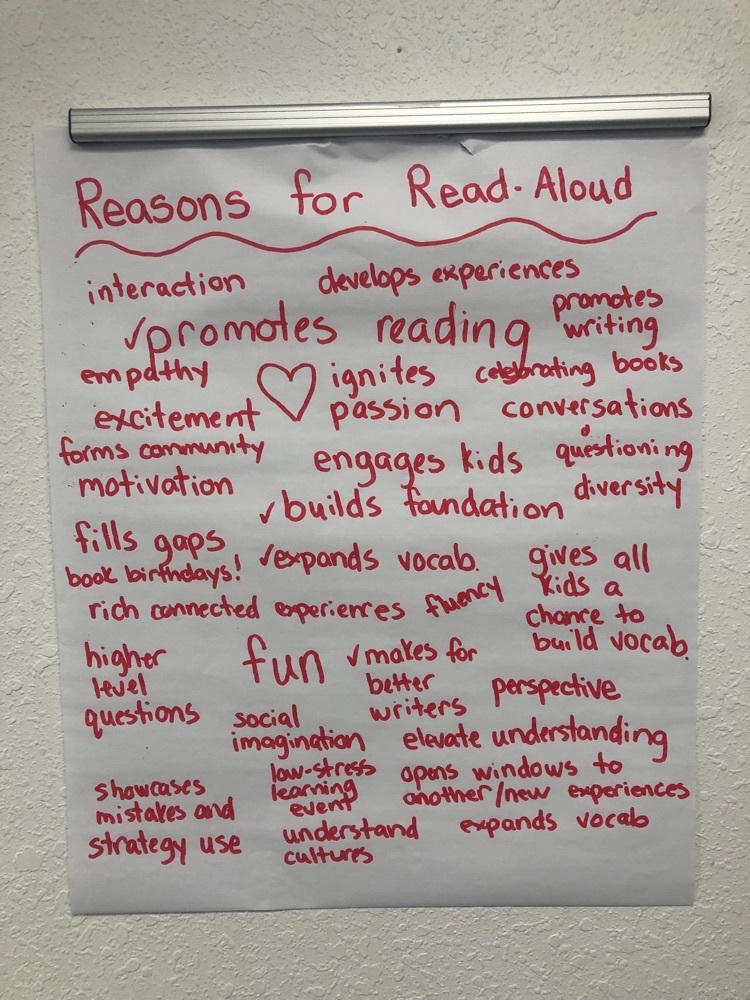 Reasons for Read-Aloud
interaction
develops experiences
✓promotes reading
promotes
writing
empathy
♡ ignites
passion
celebrating books
excitement
conversations
forms community
engages kids
& questioning
motivation
diversity
✓builds foundation
fills gaps
✓expands vocab.
gives all
kids a
chance to
build vocab.
book birthdays!
rich connected experiences
fluency
higher
level
questions
fun
✓makes for
better
writers
perspective
social
imagination
elevate understanding
low-stress
learning
event
opens windows to
another/new experiences
showcases
mistakes and
strategy use
understand
cultures
expands vocab